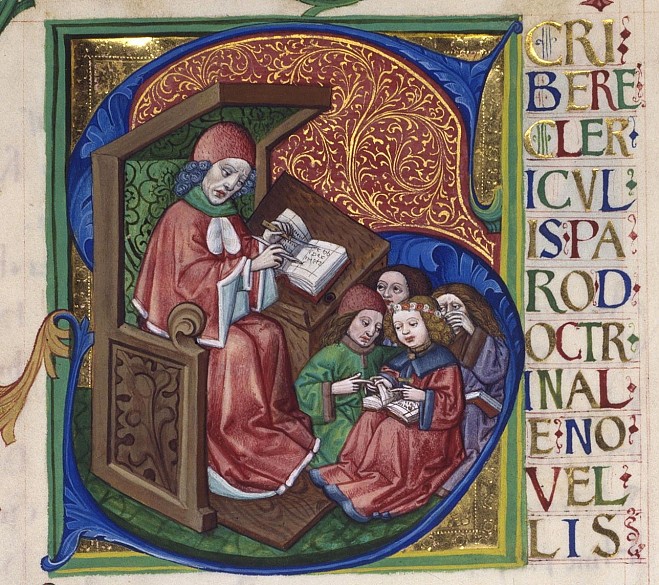 SCRI
BERE
CLER
ICVL
IS·PA
ROD
OCTR
INAL
E·NO
VEL
LIS